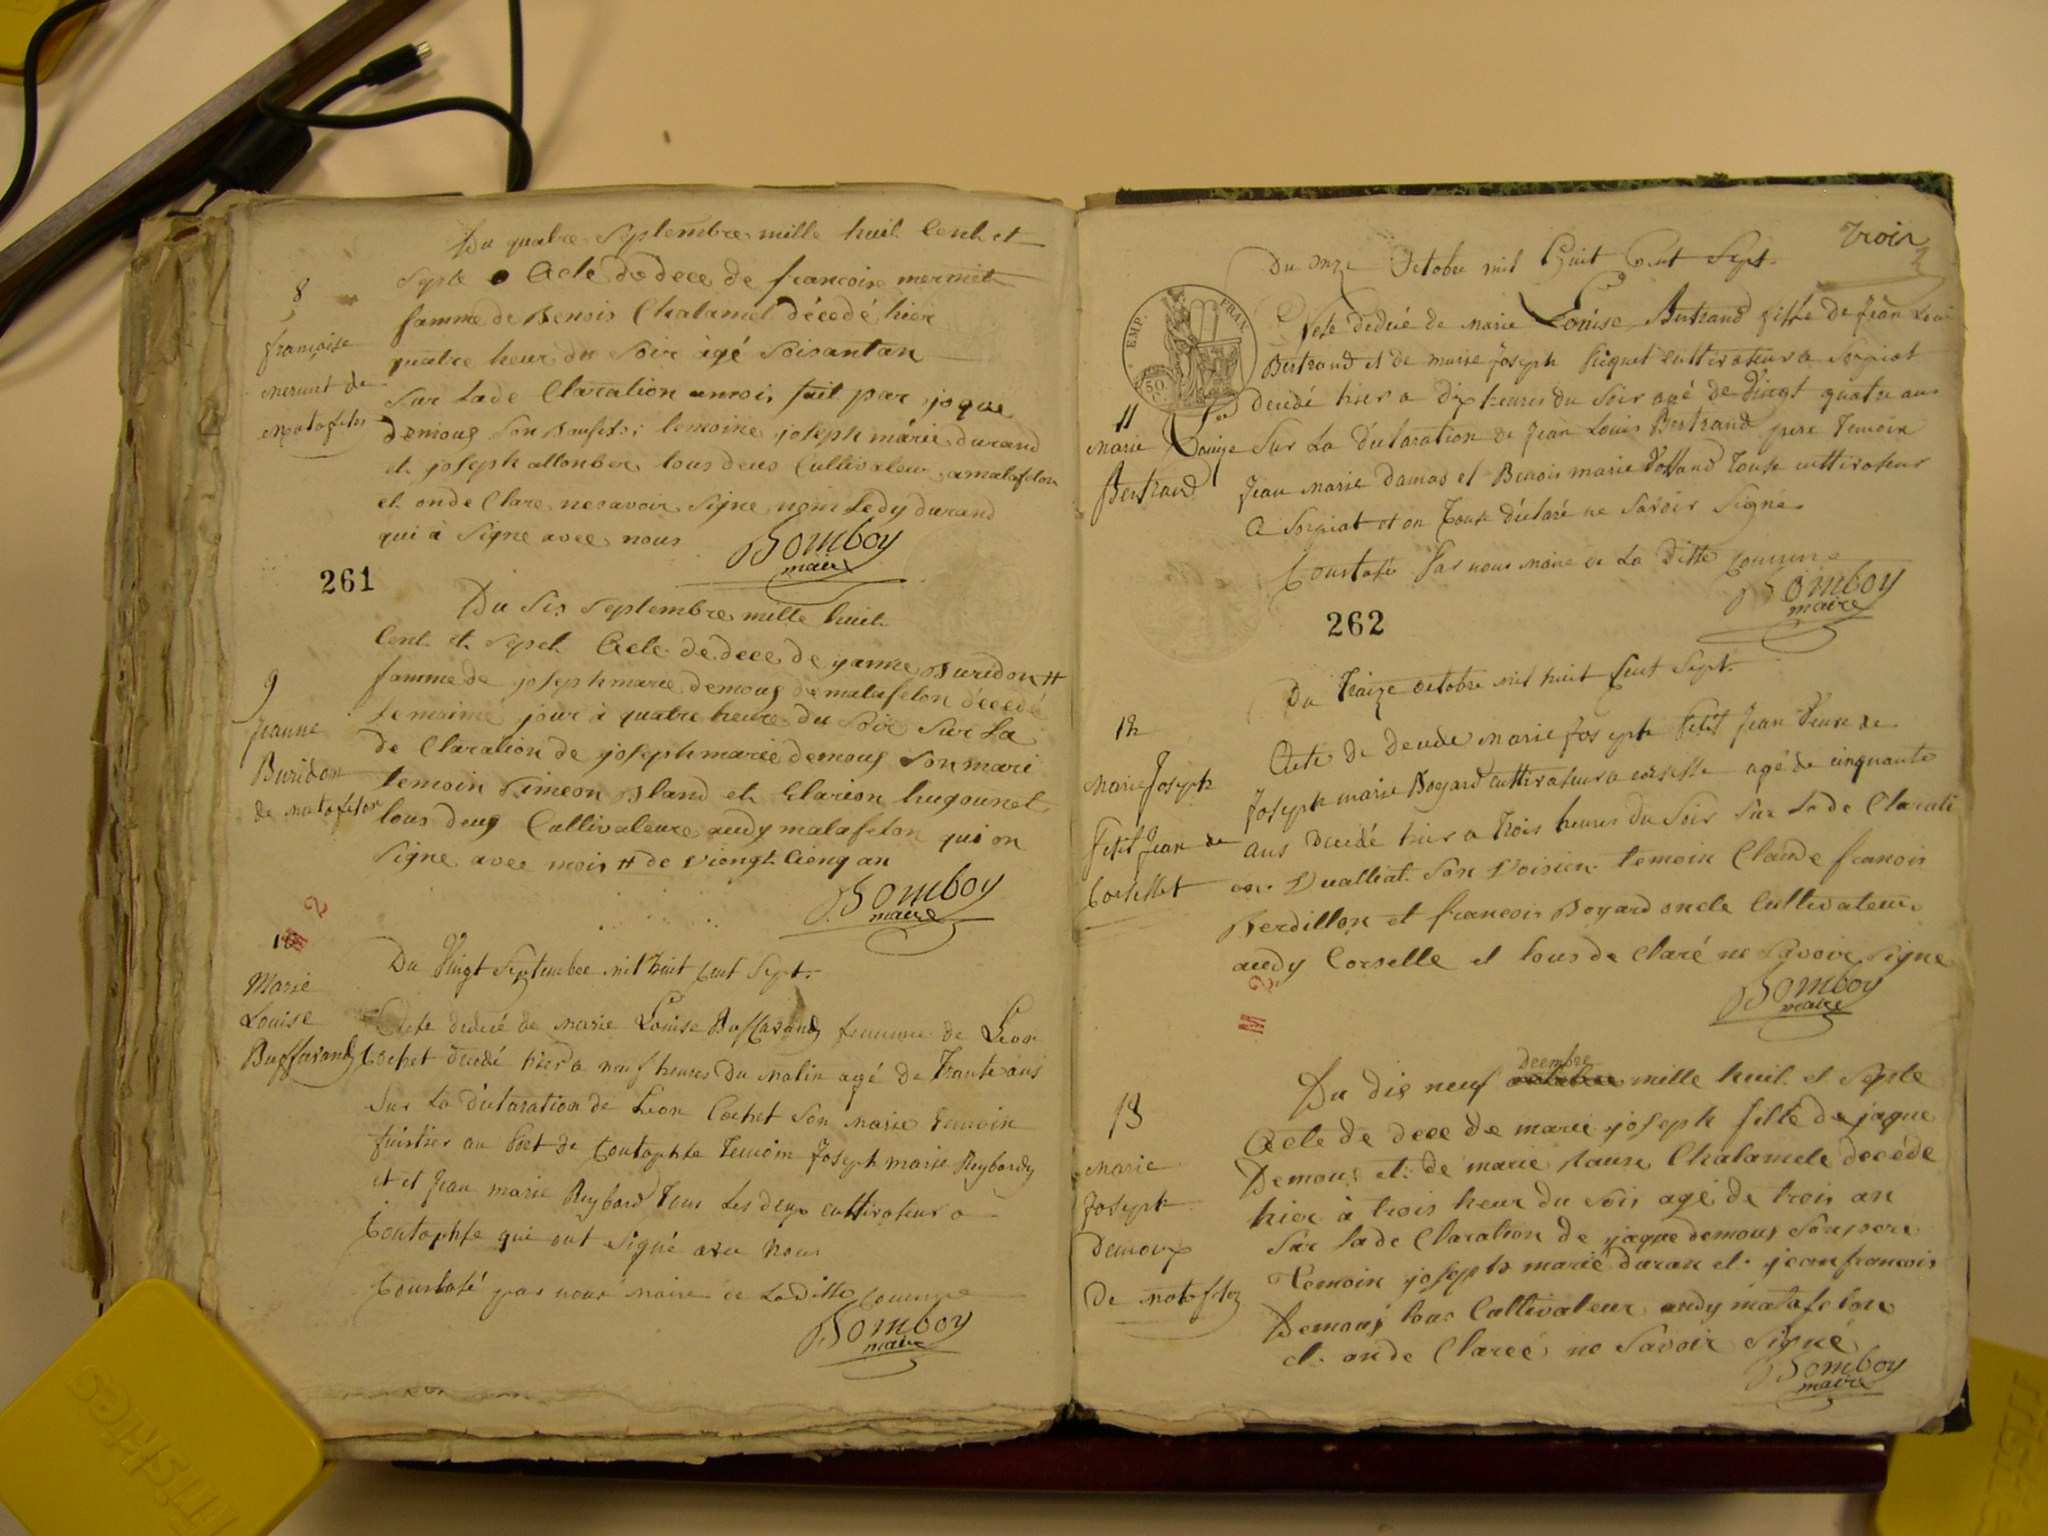 Du quatre Septembre mille huit Cent et
Septe Acte de dece de francoise mermet
famme de Benois Chalamel décedé hier
quatre heur du Soir agé Soisantan
Sur lade Claration amoi fait par joque
demoug Son Baufils: temoine joseph márie durand
et joseph allonber tous deus Cultivaleur amatafelon
et onde Clare nesavoir Signe nomledy durand
qui à Signe avec nous
Bomboy
maire
8
françoise
mermet de
matafelon
261
Du Sis Septembre mille huit
Cent et Sept Acte de dece de janne Buridon #
famme de joseph marie demoug de matafelon décedé
le maime jour à quatre heure du Soir Sur La
de Claration de joseph marie demoug Son mari
temoin Simeon Bland et Elarion hugounet
tous deug Cultivaleure audy matafelon qui on
Signe avec mois # de viengt Cienq an
Bomboy
maire
9
Jeanne
Buridon
de matafelon
10
Marie
Louise
Buffavand
Du Vingt Septembre mil huit Cent Sept.
Acte dedécé de marie Louise Buffavand femme de Leon
Cochet decedé hier a neuf heures du matin agé de Trante ans
Sur la déclaration de Leon Cochet Son marie temoin
fuistier au Port de Coutophle Temoin Joseph marie Reybardy
et et Jean marie Reybard Tous les deux cultivateur a
Coutophle qui ont signé avec nous
Constaté par nous maire de La Ditte Commune
Bomboy
maire
Trois
Du onze Octobre mil huit Cent Sept.
EMP. FRAN.
50
Acte dedécé de marie Louise Bertrand fille de Jean Louis
Bertrand et de marie Joseph Piquet cultivateur a Sorpiat
decedé hier a dix heures du Soir agé de vingt quatre ans
Sur La déclaration de Jean Louis Bertrand pere Temoin
Jean marie Damas et Benois marie Volland Touse cultivateur
a Sorpiat et on Touse déclaré ne Savoir Signé
Constaté Par nous maire de La Ditte Commune
Bomboy
maire
11
Marie Louise
Bertrand
262
Du Traize octobre mil huit Cent Sept.
Acte de decede marie Joseph Petit Jean Veuve de
Joseph marie Boyard cultivateur a corselle agé de cinquante
ans decedé hier a Trois heures du Soir Sur la de Clarati
on. Dualliat. Son voisien temoin Claude francois
Berdillon et francois Boyard oncle Cultivateur
audy Corselle et tous de Claré ne Savoir Signe
Bomboy
maire
12
Marie Joseph
Petit Jean de
Corsellet
Du dis neuf decembre mille huit et Septe
Acte de dece de marie joseph fille de jaque
Demoug et de marie Chalamele decéde
hier à trois heur du Soir agé de trois an
Sur lade Claration de jaque demoug Sonpere
Temoin joseph marie duran et jean francois
Demoug tous Cultivaleur audy matafelon
et onde Clareé ne Savoir Signé
Bomboy
maire
13
Marie
Joseph
Demoux
De matafelon